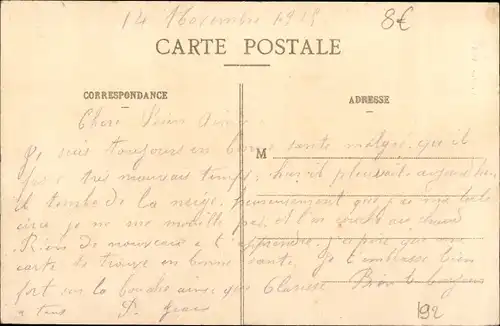 14 Novembre 1915
8€
CARTE POSTALE
CORRESPONDANCE
ADRESSE
Chère
Je suis toujours en bonne santé malgré qu'il
M
fait très mauvais temps, hier il pleuvait aujourd'hui
il tombe de la neige, heureusement que j'ai ma toile
je ne me mouille pas, et l'on couche au chaud
Rien de nouveau à t'apprendre, j'espère que ma
carte te trouve en bonne santé, je t'embrasse bien
fort sur la bouche ainsi que Clarisse Bien le bonjour
à tous
192